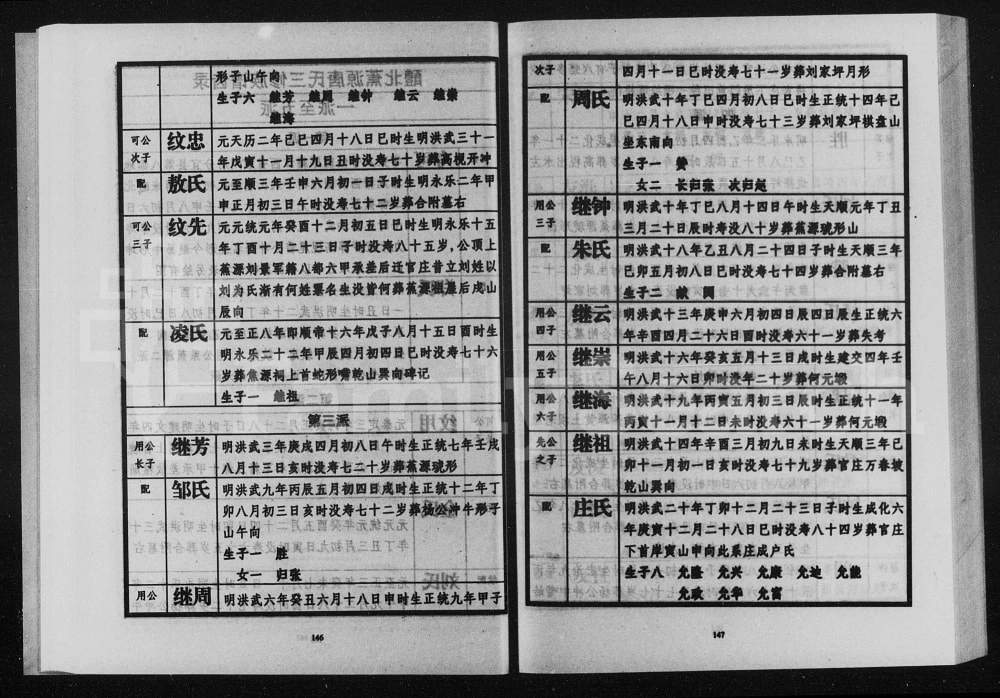 形子山午向
生子六 继芳 继周 继钟 继云 继崇
继海
可公次子 纹忠 元天历二年己巳四月十八日巳时生明洪武三十一
年戊寅十一月十九日丑时没寿七十岁葬高枧开冲
配 敖氏 元至顺三年壬申六月初一日子时生明永乐二年甲
申正月初三日午时没寿七十二岁葬合附墓右
可公三子 纹先 元元统元年癸酉十二月初五日巳时生明永乐十五
年丁酉十月二十三日子时没寿八十五岁,公顶上
蕉源刘景军籍八都六甲承差后迁官庄昔立刘姓以
刘为氏渐有何姓票名生没皆何葬蕉源祖差后戌山
辰向
配 凌氏 元至正八年即顺帝十六年戊子八月十五日酉时生
明永乐二十二年甲辰四月初四日巳时没寿七十六
岁葬蕉源祠上首蛇形嘴乾山巽向碑记
生子一 继祖
第三派
用公长子 继芳 明洪武三年庚戌四月初八日午时生正统七年壬戌
八月十三日亥时没寿七二十岁葬蕉源琥形
配 邹氏 明洪武九年丙辰五月初四日戌时生正统十二年丁
卯八月初三日亥时没寿七十二岁葬杨公冲牛形子
山午向
生子一 胜
女一 归张
用公 继周 明洪武六年癸丑六月十八日申时生正统九年甲子
146
次子 四月十一日巳时没寿七十一岁葬刘家坪月形
配 周氏 明洪武十年丁巳四月初八日巳时生正统十四年己
巳四月十八日申时没寿七十三岁葬刘家坪棋盘山
坐东南向
生子一 赞
女二 长归张 次归赵
用公三子 继钟 明洪武十年丁巳八月十四日午时生天顺元年丁丑
三月二十日辰时没寿八十岁葬蕉源琥形山
配 朱氏 明洪武十八年乙丑八月二十四日子时生天顺三年
己卯五月初八日巳时没寿七十四岁葬合附墓右
生子二 献
用公四子 继云 明洪武十三年庚申六月初四日辰四日辰生正统六
年辛酉四月二十六日酉时没寿六十一岁葬失考
用公五子 继崇 明洪武十六年癸亥五月十三日戌时生建交四年壬
午八月十六日卯时没年二十岁葬何元塅
用公六子 继海 明洪武十九年丙寅五月初三日辰时生正统十一年
丙寅十一月初二日未时没寿六十一岁葬何元塅
先公之子 继祖 明洪武十四年辛酉三月初九日未时生天顺三年己
卯十一月初一日亥时没寿七十九岁葬官庄万春坡
乾山巽向
配 庄氏 明洪武二十年丁卯十二月二十三日子时生成化六
年庚寅十二月二十八日巳时没寿八十四岁葬官庄
下首岸寅山申向此系庄成卢氏
生子八 允隆 允兴 允康 允迪 允能
允政 允华 允富
147